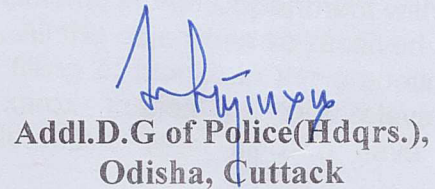 Addl.D.G of Police(Hdqrs.),
Odisha, Cuttack